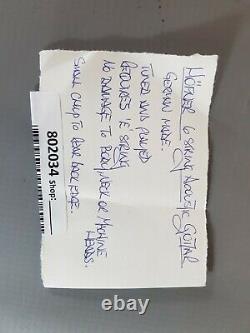 HÖFNER 6 STRING ACOUSTIC GUITAR
GERMAN MADE.
TUNED AND PLAYED
REQUIRES 'E' STRING
NO DAMAGE TO BODY/NECK OR MACHINE
HEADS.
SMALL CHIP TO REAR BACK EDGE.
802034
Shop:
ebay